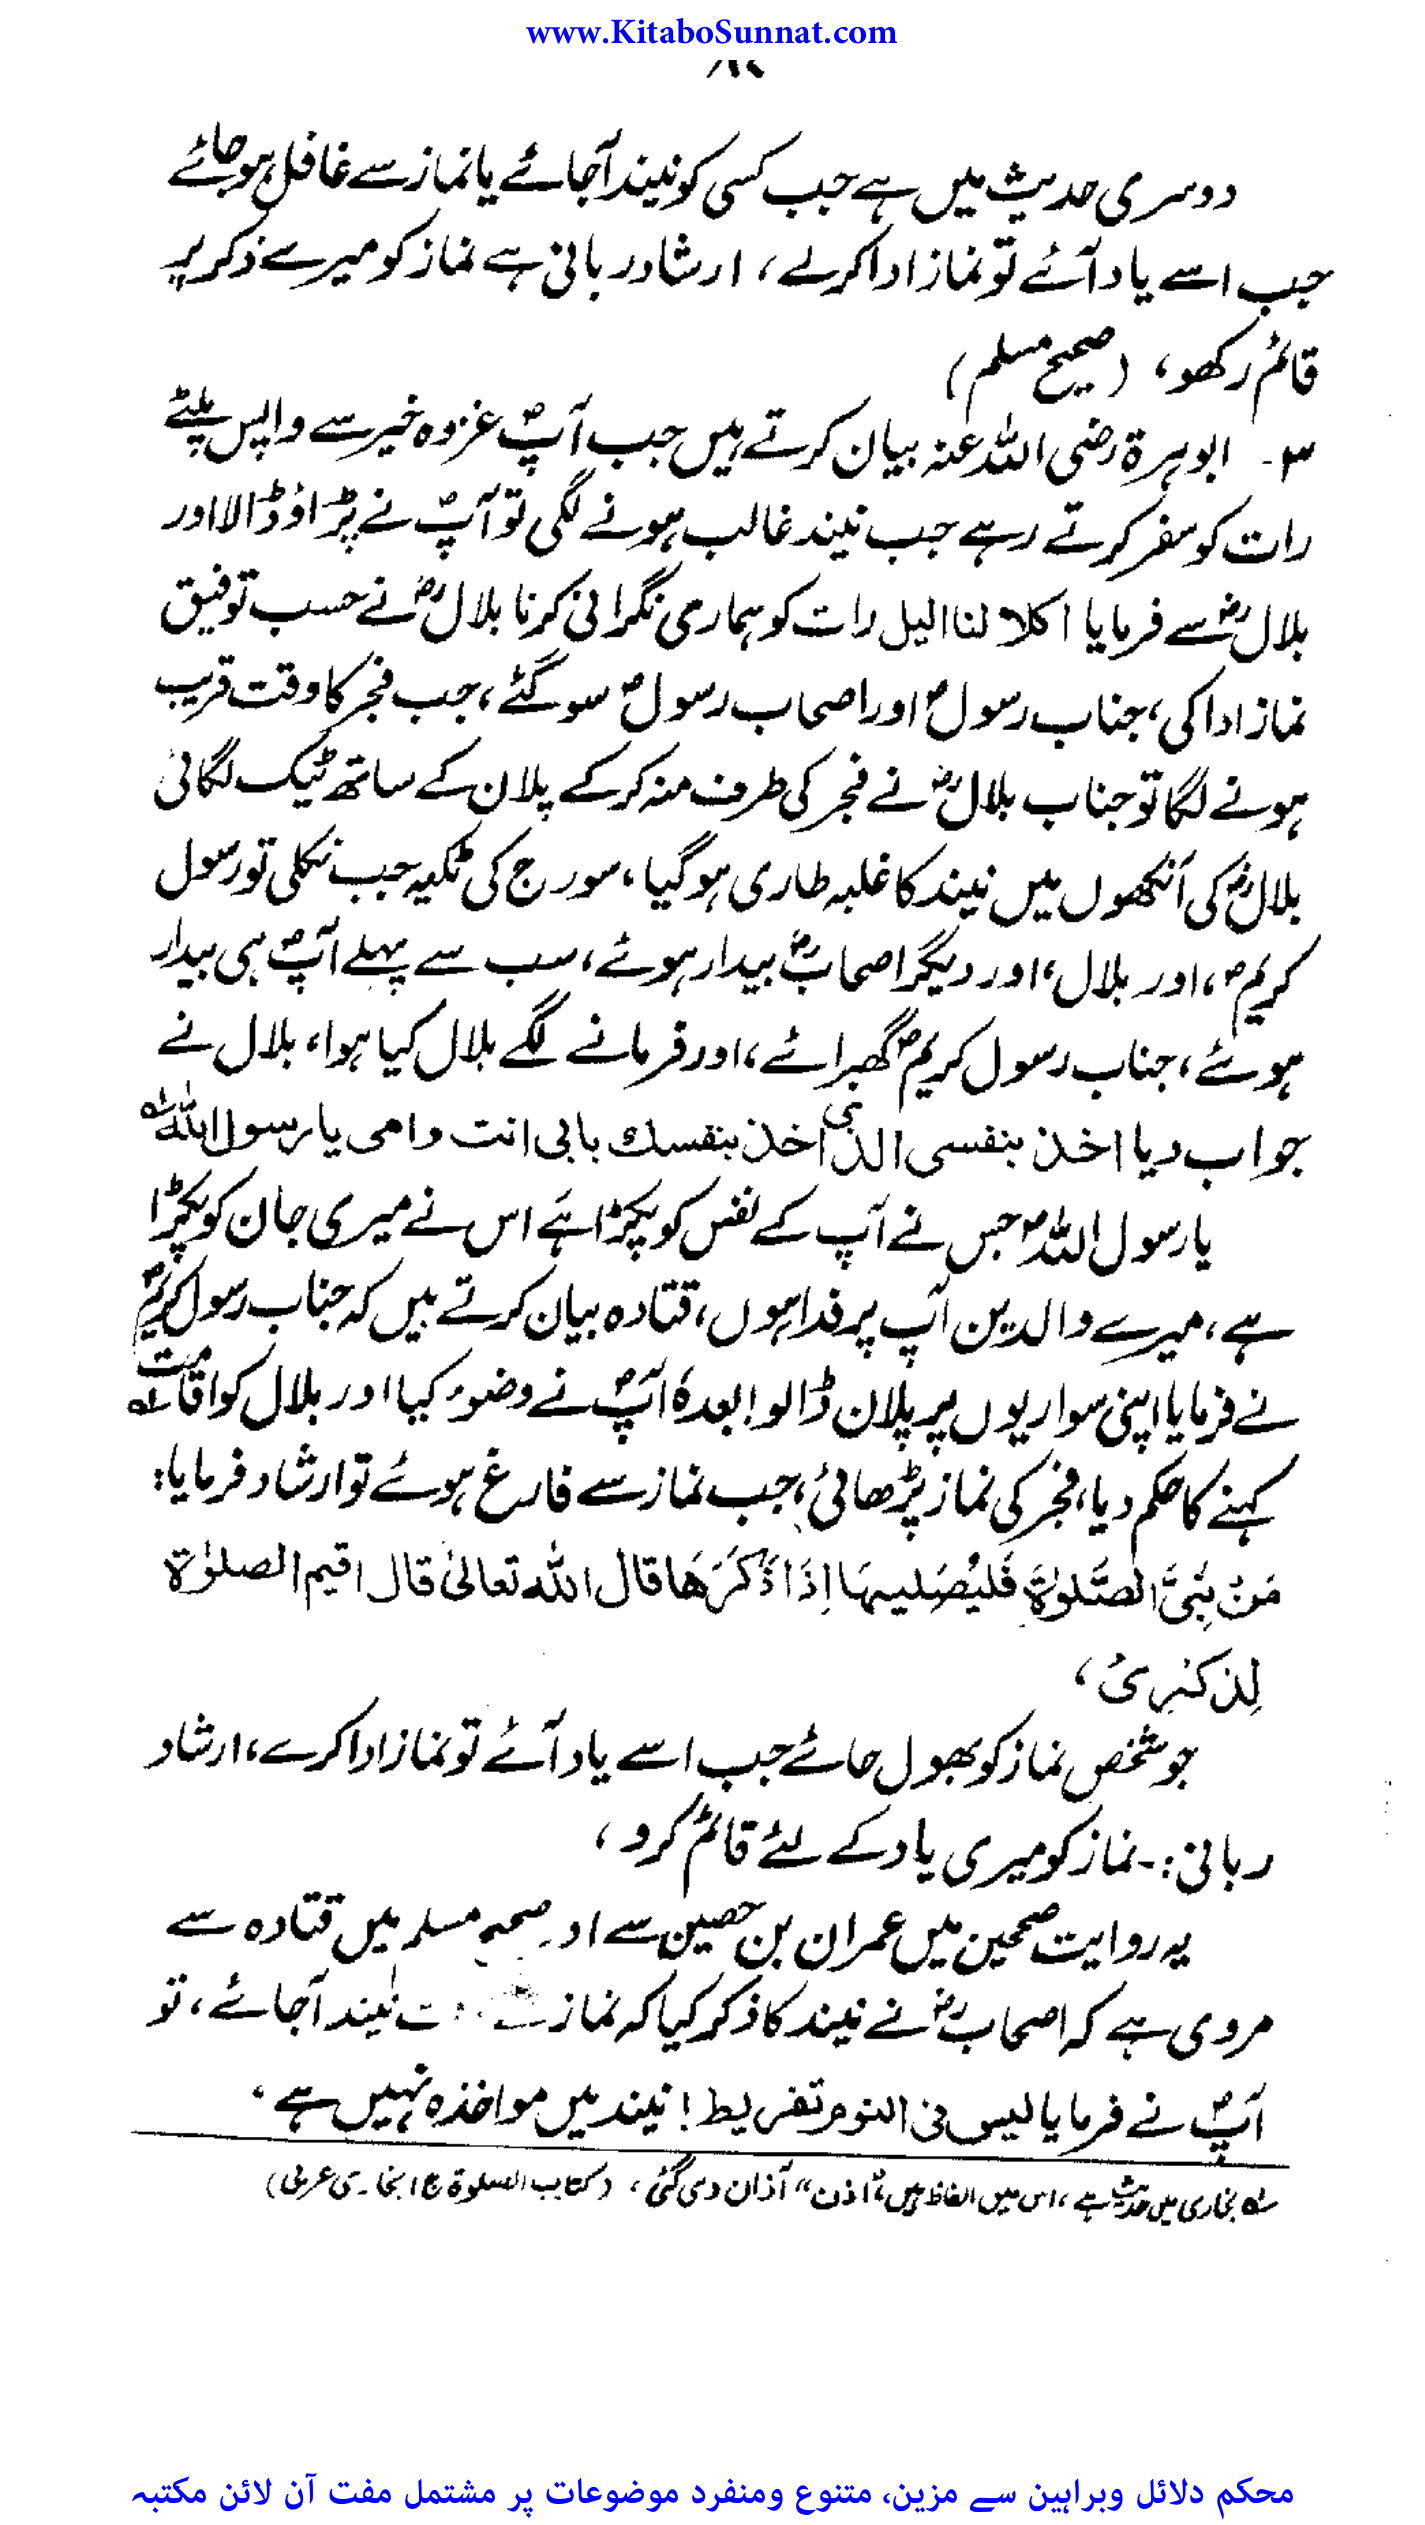 www.KitaboSunnat.com
دوسری حدیث میں ہے جب کسی کو نیند آجائے یا نماز سے غافل ہو جائے
جب اسے یاد آئے تو نماز ادا کرلے، ارشاد ربانی ہے نماز کو میرے ذکر پر
قائم رکھو، (صحیح مسلم)
۳۔ ابوہرۃ رضی اللہ عنہ بیان کرتے ہیں جب آپؐ غزوہ خیبر سے واپس پلٹے
رات کو سفر کرتے رہے جب نیند غالب ہونے لگی تو آپؐ نے پڑاؤ ڈالا اور
بلالؓ سے فرمایا اکلا لنا الیل رات کو ہماری نگرانی کرنا بلالؓ نے حسب توفیق
نماز ادا کی، جناب رسولؐ اور اصحاب رسولؐ سو گئے، جب فجر کا وقت قریب
ہونے لگا تو جناب بلالؓ نے فجر کی طرف منہ کرکے پلان کے ساتھ ٹیک لگائی
بلالؓ کی آنکھوں میں نیند کا غلبہ طاری ہوگیا، سورج کی ٹکیہ جب نکلی تو رسول
کریمؐ، اور بلال، اور دیگر اصحابؓ بیدار ہوئے، سب سے پہلے آپؐ ہی بیدار
ہوئے، جناب رسول کریمؐ گھبرائے، اور فرمانے لگے بلال کیا ہوا، بلال نے
جواب دیا اخذ بنفسی الذی اخذ بنفسك بابی انت وامی یا رسول اللہ ؎۱
یا رسول اللہؐ جس نے آپ کے نفس کو پکڑا ہے اس نے میری جان کو پکڑا
ہے، میرے والدین آپ پر فدا ہوں، قتادہ بیان کرتے ہیں کہ جناب رسول کریمؐ
نے فرمایا اپنی سواریوں پر پلان ڈالو! بعدہٗ آپؐ نے وضوء کیا اور بلال کو اقامت ؎۱
کہنے کا حکم دیا، فجر کی نماز پڑھائی، جب نماز سے فارغ ہوئے تو ارشاد فرمایا:
مَنْ نَسِیَ الصَّلوٰۃَ فَلیُصَلیہَا اِذَا ذَکَرَھَا قال اللہ تعالیٰ قال اقیم الصلوٰۃ
لِذکْرِیْ،
جو شخص نماز کو بھول جائے جب اسے یاد آئے تو نماز ادا کرے، ارشاد
ربانی:۔ نماز کو میری یاد کے لئے قائم کرو،
یہ روایت صحیحین میں عمران بن حصین سے اور صحیح مسلم میں قتادہ سے
مروی ہے کہ اصحابؓ نے نیند کا ذکر کیا کہ نماز نیند آجائے، تو
آپؐ نے فرمایا لیس فی النوم تفریط! نیند میں مواخذہ نہیں ہے،
؎۱ بخاری میں حدیث ہے، اس میں الفاظ ہیں، "اذن" آذان دی گئی، (کتاب الصلوۃ ج ۱ بخاری عربی)
محکم دلائل وبراہین سے مزین، متنوع ومنفرد موضوعات پر مشتمل مفت آن لائن مکتبہ